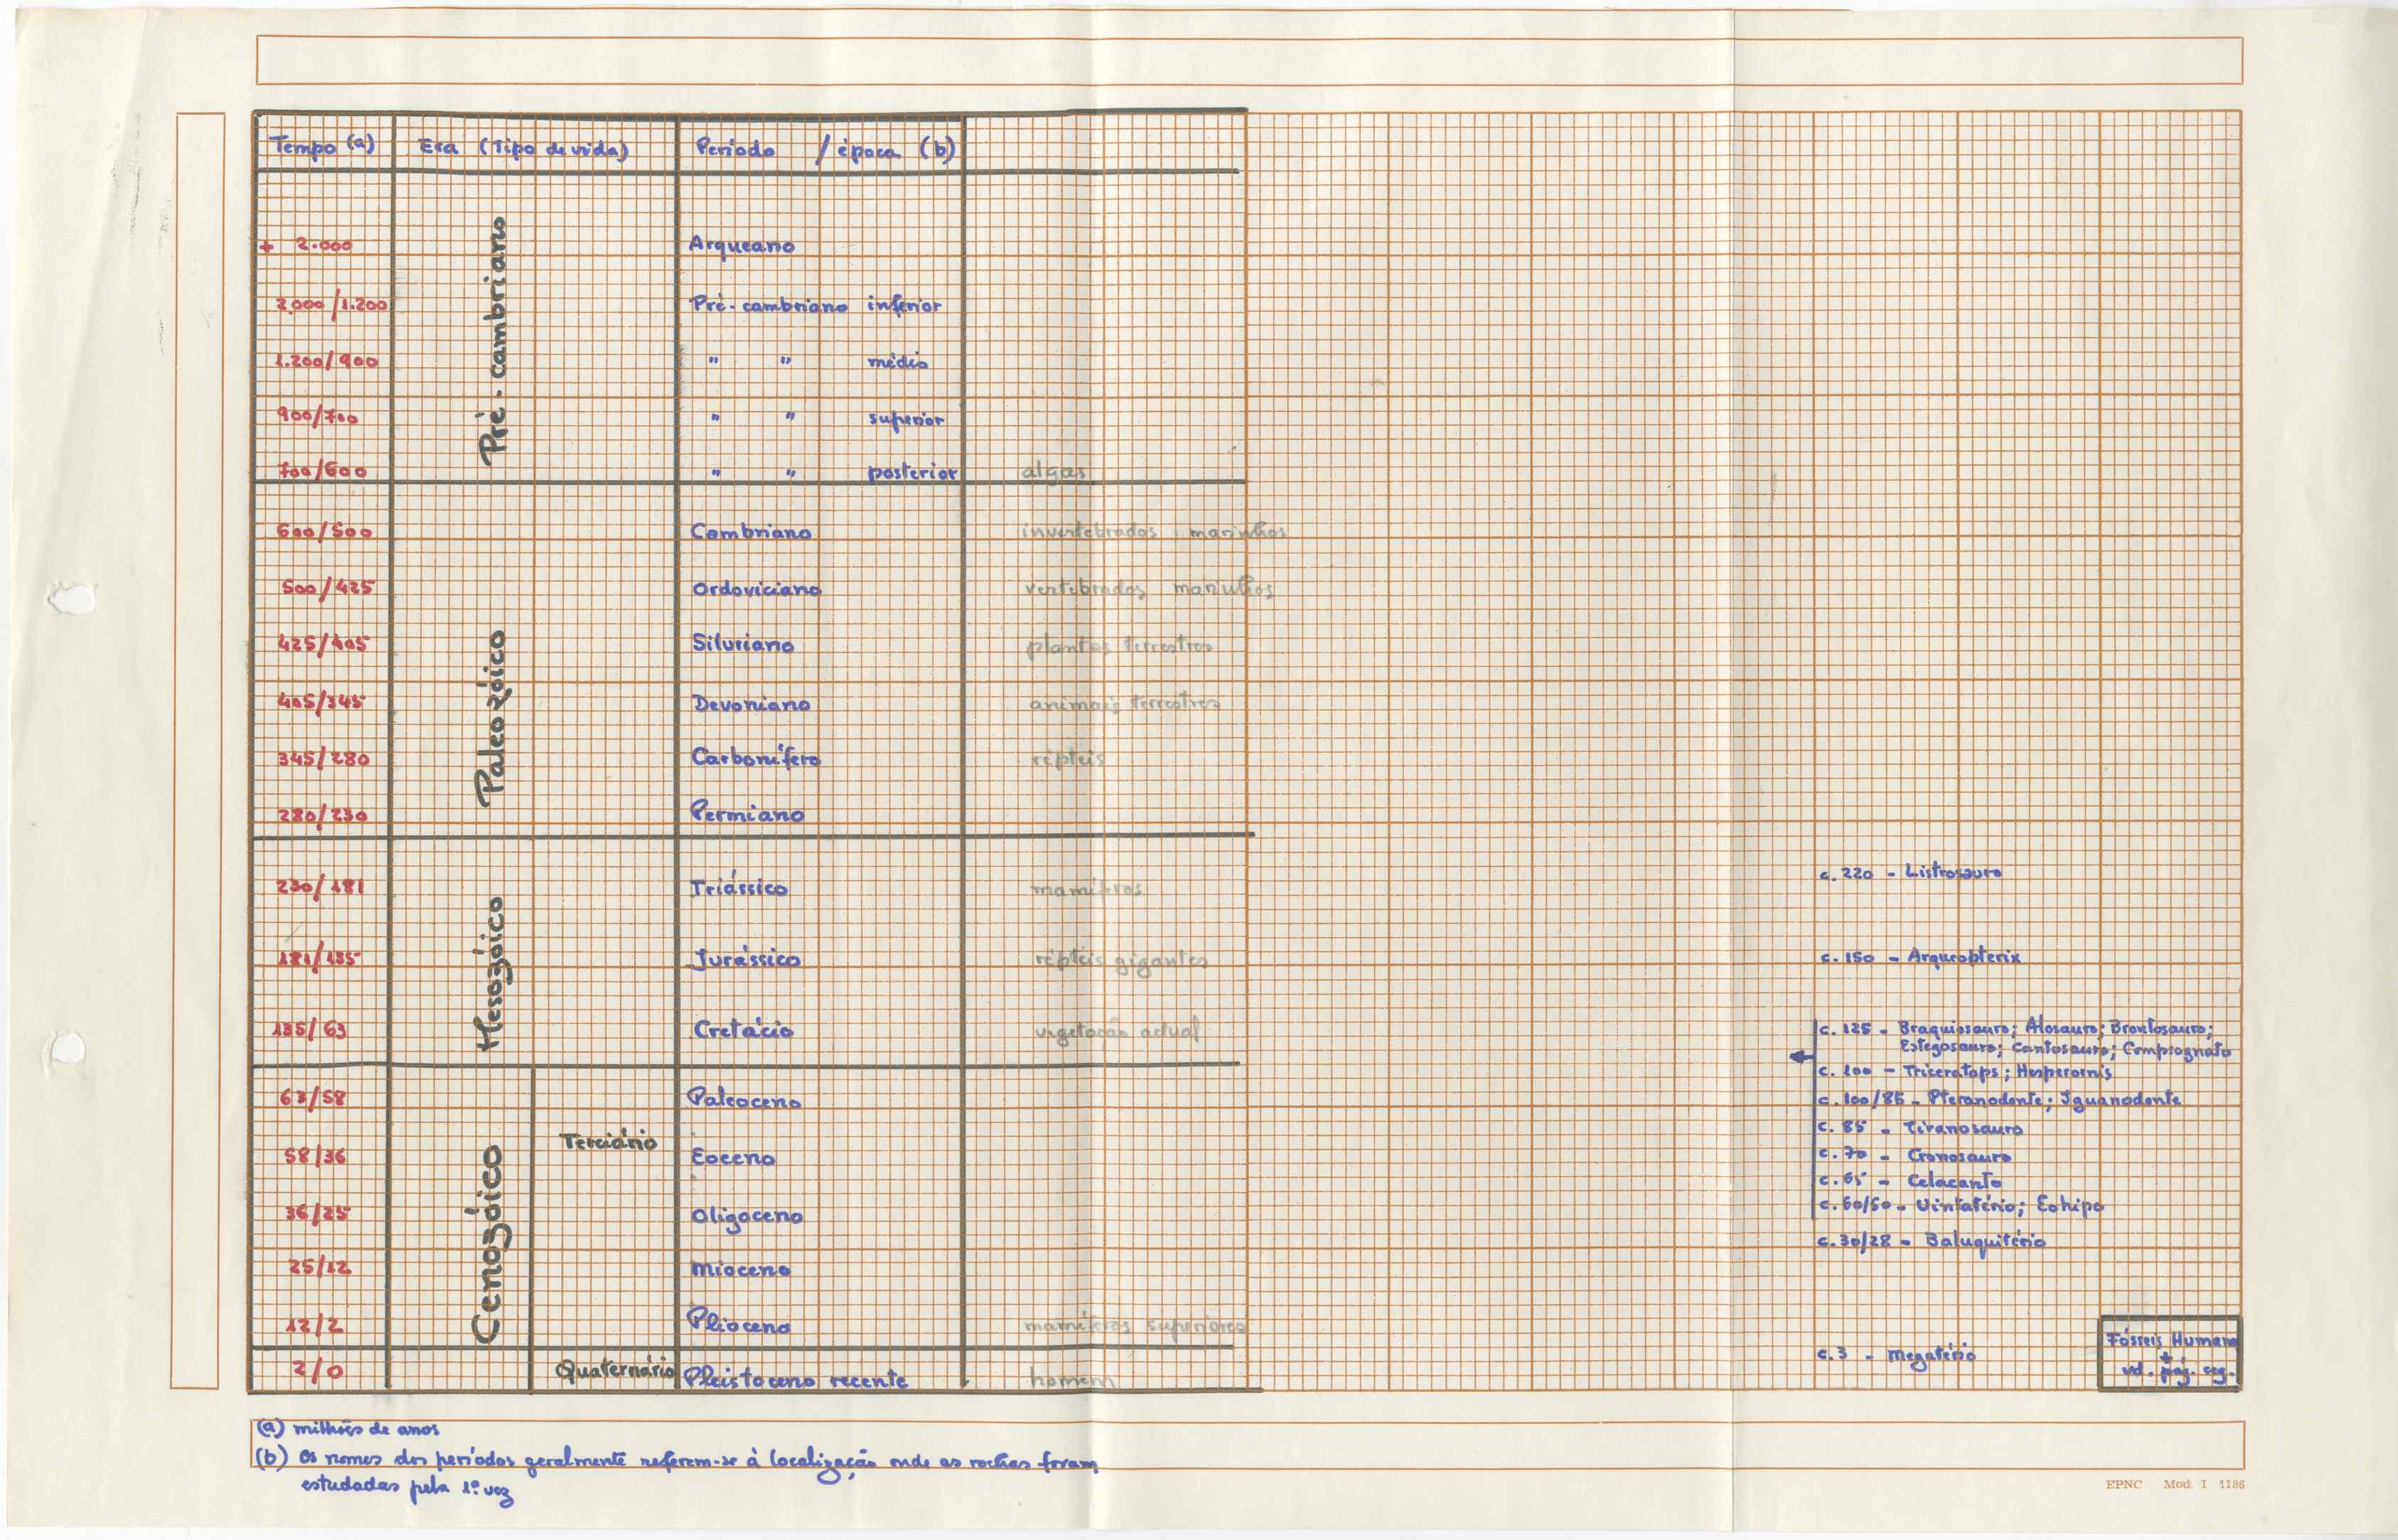 Tempo (a) Era (Tipo de vida) Período / época (b)
Pré-cambriano
+ 2.000 Arqueano
2.000/1.200 Pré-cambriano inferior
1.200/900 " " médio
900/700 " " superior
700/600 " " posterior algas
Paleozóico
600/500 Cambriano invertebrados marinhos
500/425 Ordoviciano vertebrados marinhos
425/405 Siluriano plantas terrestres
405/345 Devoniano animais terrestres
345/280 Carbonífero répteis
280/230 Permiano
Mesozóico
230/181 Triássico mamíferos
181/135 Jurássico répteis gigantes
135/63 Cretácio vegetação actual
Cenozóico
Terciário
63/58 Paleoceno
58/36 Eoceno
36/25 Oligoceno
25/12 Mioceno
12/2 Plioceno mamíferos superiores
2/0 Quaternário Pleistoceno recente homem
c. 220 - Listrosauro
c. 150 - Arqueopterix
c. 125 - Braquiosauro; Alosauro; Brontosauro;
Estegosauro; Cantosauro; Compsognato
c. 100 - Triceratops; Hesperornis
c. 100/85 - Pteranodonte; Iguanodonte
c. 85 - Tiranosauro
c. 70 - Cronosauro
c. 65 - Celacanto
c. 60/50 - Uintatério; Eohipo
c. 30/28 - Baluquitério
c. 3 - Megatério
Fósseis Humanos
+
vd. pág. seg.
(a) milhões de anos
(b) Os nomes dos períodos geralmente referem-se à localização onde as rochas foram
estudadas pela 1ª vez
EPNC Mod. I 1186